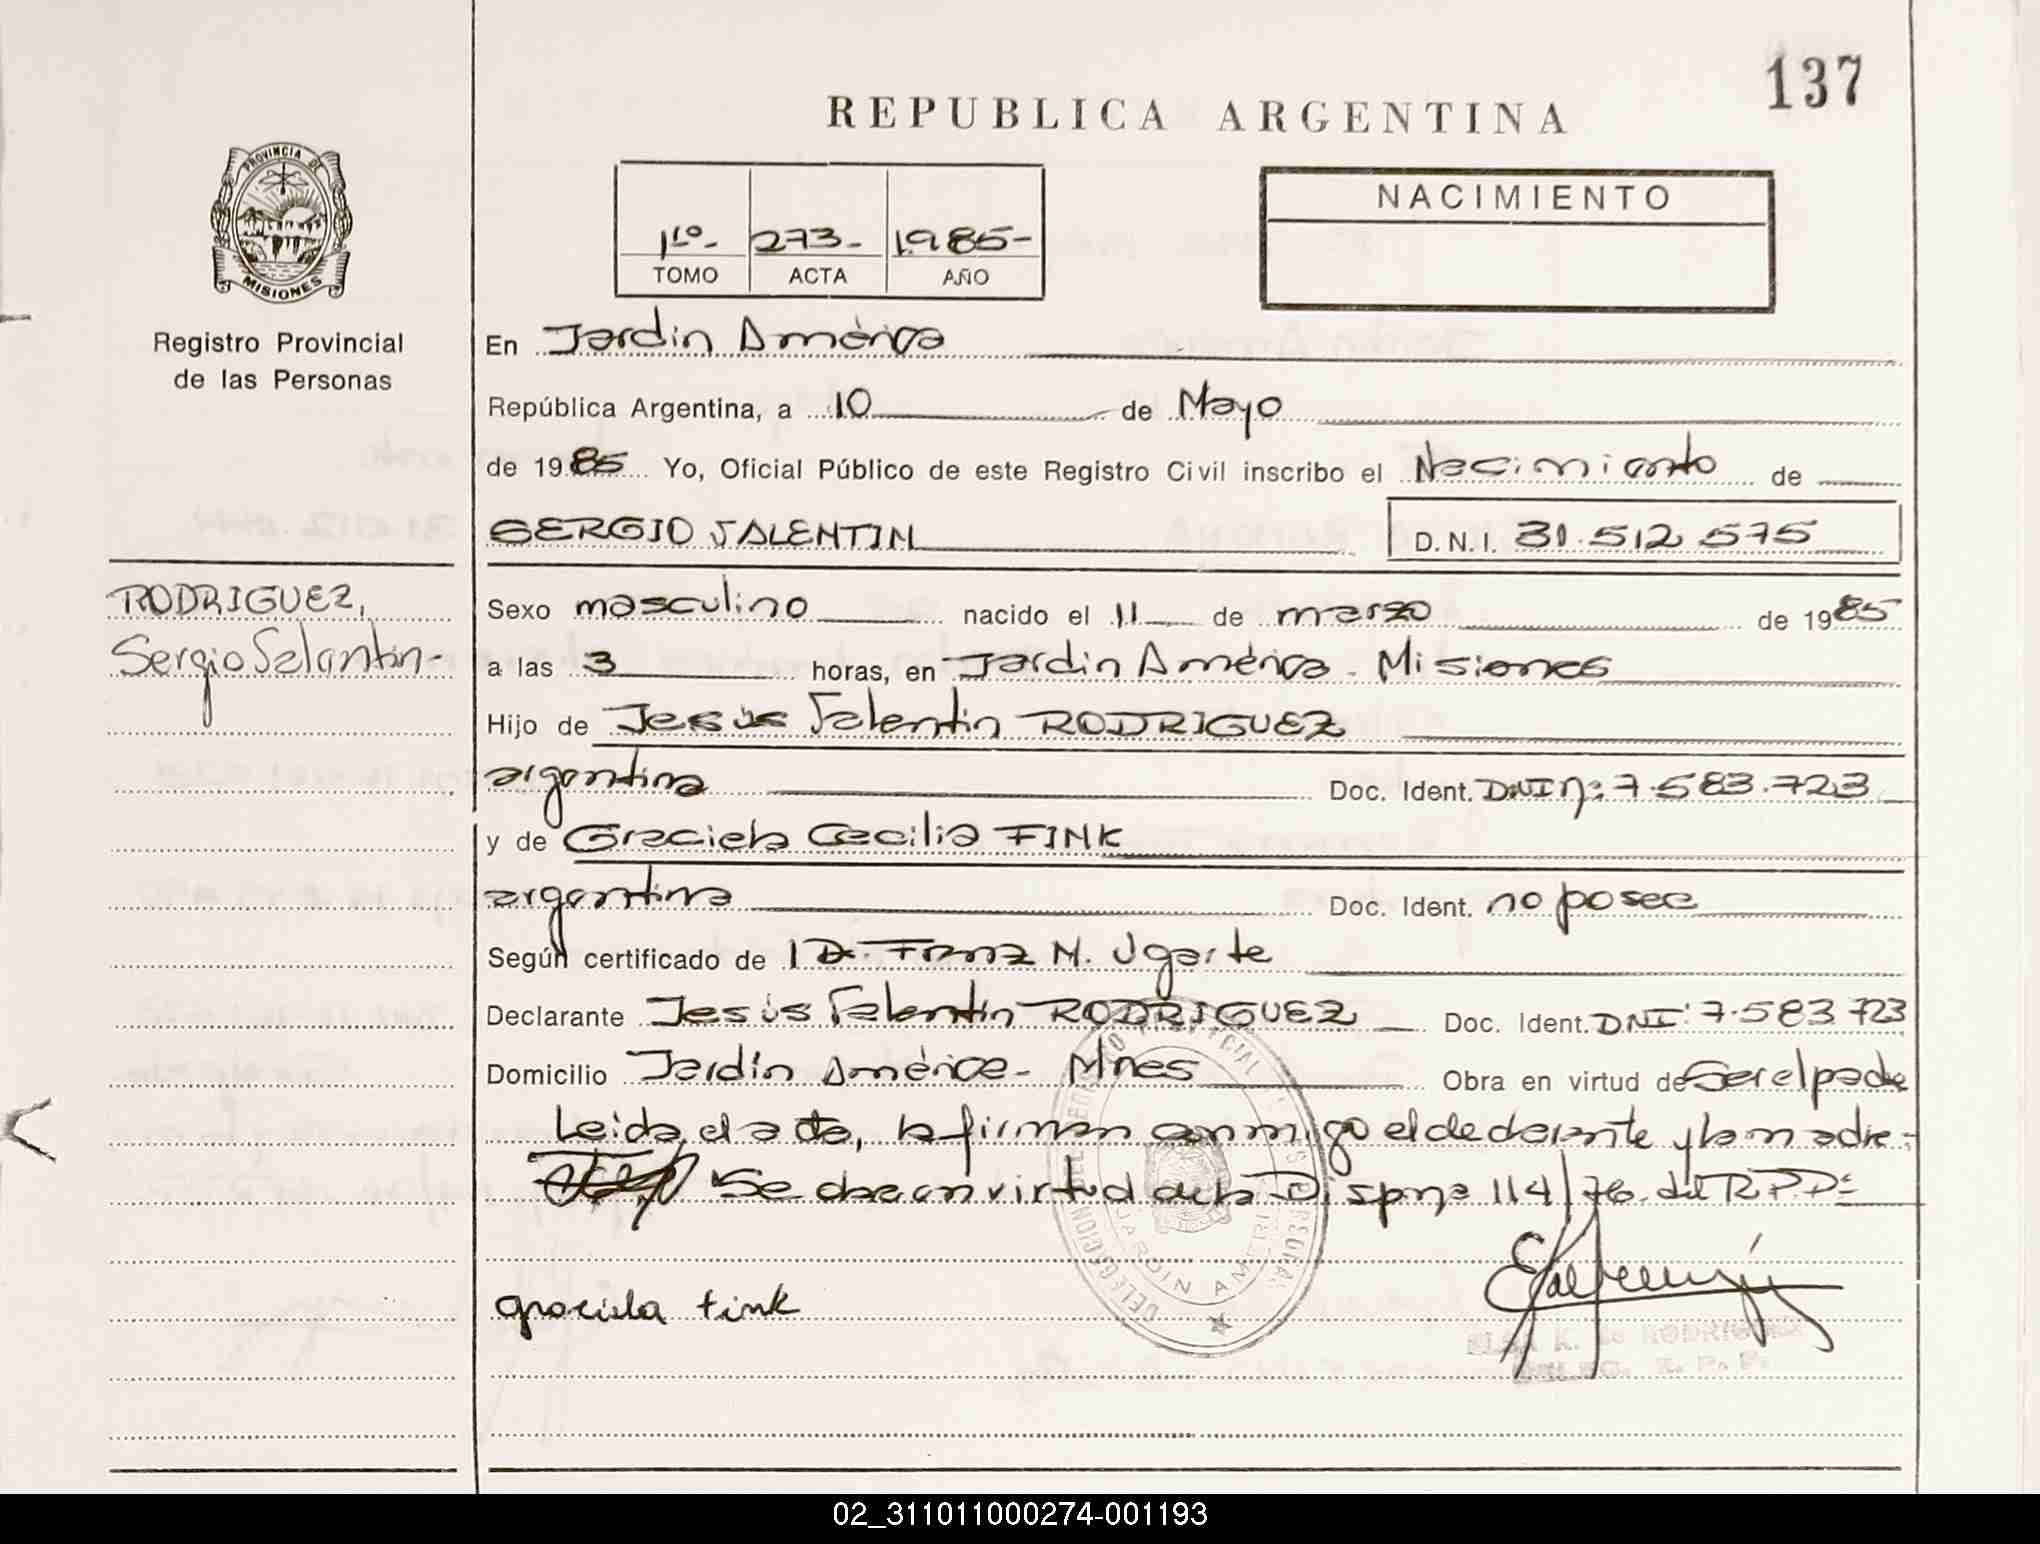 137
REPUBLICA ARGENTINA
PROVINCIA DE
MISIONES
Registro Provincial
de las Personas
1ro- 273- 1985-
TOMO ACTA AÑO
NACIMIENTO
En Jardin América
República Argentina, a 10 de Mayo
de 1985 Yo, Oficial Público de este Registro Civil inscribo el Nacimiento de
SERGIO VALENTIN D.N.I. 31.512.575
RODRIGUEZ,
Sergio Valentin-
Sexo masculino nacido el 11 de marzo de 1985
a las 3 horas, en Jardin América - Misiones
Hijo de Jesús Valentin RODRIGUEZ
argentina Doc. Ident. DNI nº: 7.583.723
y de Graciela Cecilia FINK
argentina Doc. Ident. no posee
Según certificado de Dr. Franz M. Ugarte
Declarante Jesús Valentin RODRIGUEZ Doc. Ident. DNI: 7.583.723
Domicilio Jardín América- Mnes Obra en virtud de Ser el padre
Leida el acta, la firman conmigo el declarante y la madre-
Se obra en virtud de la 114/76 del R.P.P.
DELEGACION DEL REGISTRO PROVINCIAL PERSONAS
JARDIN AMERICA
graciela fink
ELSA K. de RODRIGUEZ
DELEG. R. P. P.
02_311011000274-001193